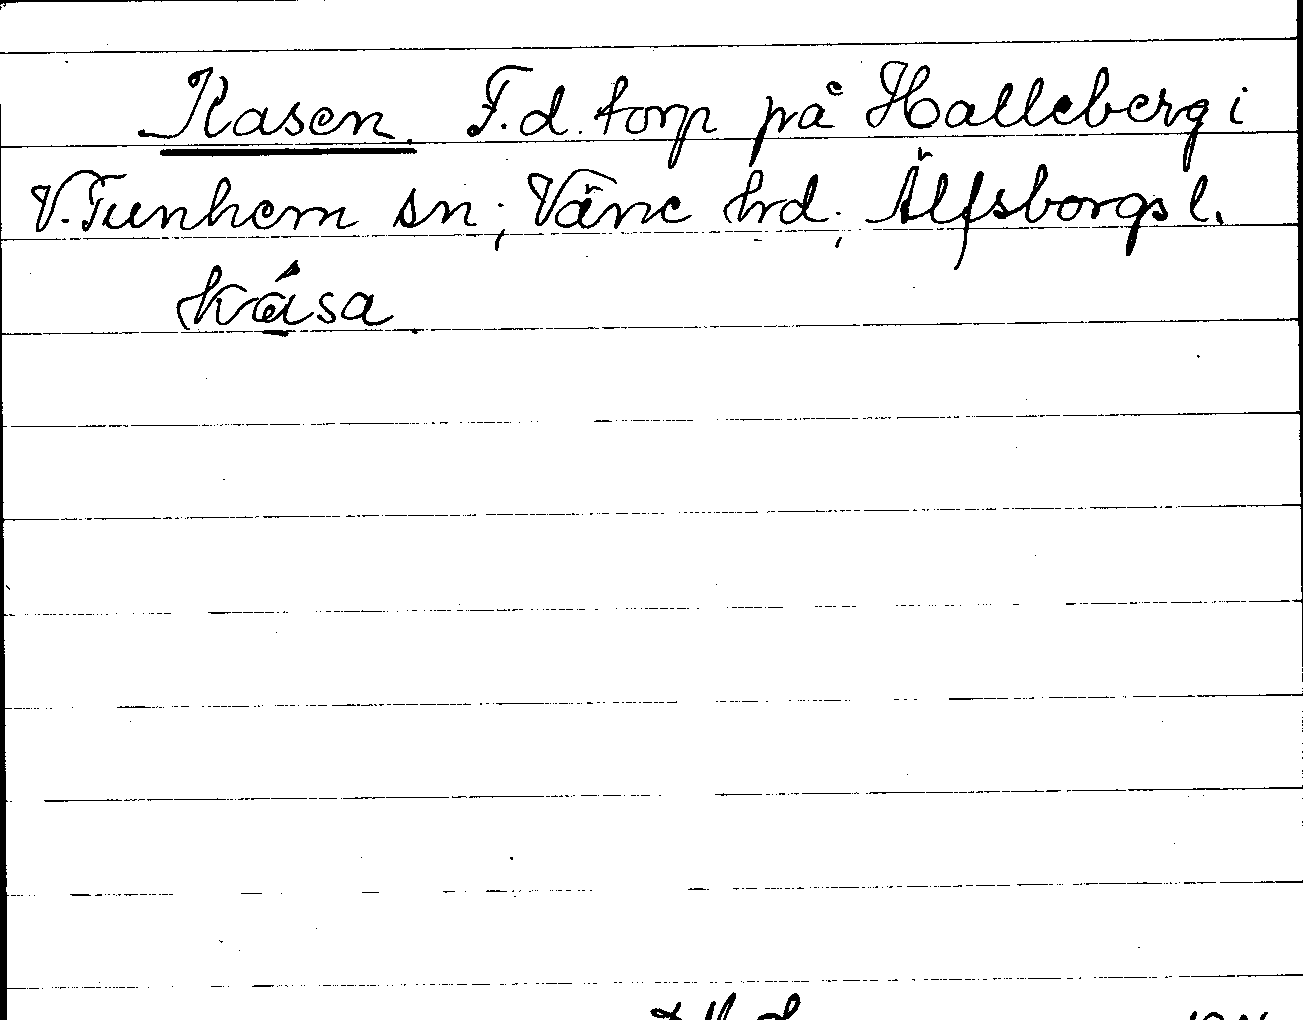 Kasen. F.d. torp på Halleberg i
V. Tunhem sn; Väne hrd; Älfsborgs l.
kása